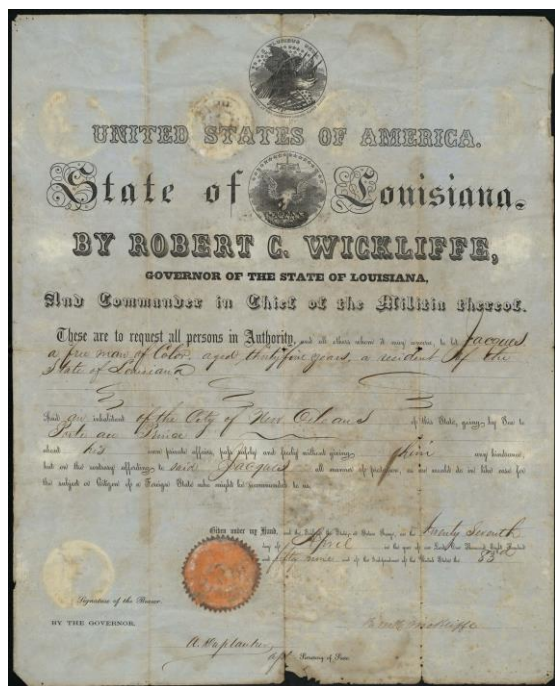 UNITED STATES OF AMERICA.
State of Louisiana.
BY ROBERT C. WICKLIFFE,
GOVERNOR OF THE STATE OF LOUISIANA,
And Commander in Chief of the Militia thereof.
These are to request all persons in Authority, and all others whom it may concern, to let Jacques
a free man of Color, aged thirty five years, a resident of the
State of Louisiana
And an inhabitant of the City of New Orleans of this State, going by Sea to
Port au Prince
about his own private affairs, pass safely and freely without giving him any hindrance,
but on the contrary affording to said Jacques all manner of protection, as we would do in like case for
the subject or Citizen of a Foreign State who might be recommended to us.
Given under my Hand, and the Seal of the State, at Baton Rouge, on the Twenty Seventh
day of April in the year of our Lord, One Thousand Eight Hundred
and fifty nine and of the Independence of the United States the 83rd
Signature of the Bearer.
BY THE GOVERNOR,
Secretary of State.